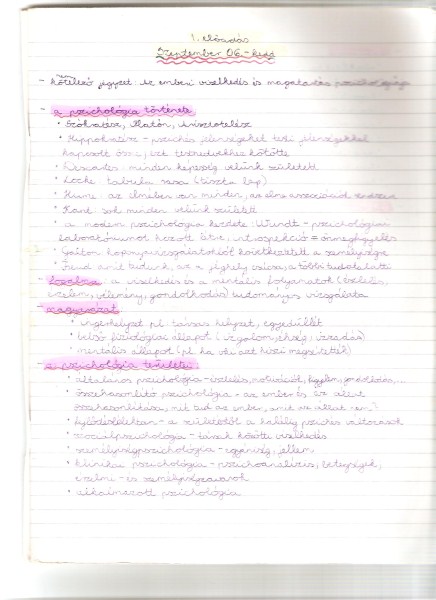 1. előadás
Szeptember 06. - kedd
- kötelező jegyzet: Az emberi viselkedés és magatartás pszichológiája
- a pszichológia története
• Szókratész, Platón, Arisztotelész
• Hippokratész - pszichés jelenségeket testi jelenségekkel
kapcsolt össze, vért testnedvekhez kötötte
• Descartes: minden képesség velünk született
• Locke: tabula rasa (tiszta lap)
• Hume: az elmében van minden, az elme asszociációs rendszer
• Kant: sok minden velünk született
• a modern pszichológia kezdete: Wundt - pszichológiai
laboratóriumot hozott létre, introspekció = önmegfigyelés
• Galton koponyavizsgálatokból következtetett a személyiségre
• Freud amit tudunk, az a jéghegy csúcsa, a többi tudatalatti
: a viselkedés és a mentális folyamatok (észlelés,
érzelem, vélemény, gondolkodás) tudományos vizsgálata
• ingerhelyzet pl. társas helyzet, egyedüllét
• belső fiziológiai állapot (izgalom, éhség, izzadás)
• mentális állapot (pl. ha volt azt hiszi megsértették)
- a pszichológia területei
• általános pszichológia - észlelés, motiváció, figyelem, gondolkodás,...
• összehasonlító pszichológia - az ember és az állat
összehasonlítása, mit tud az ember, amit az állat nem?
• fejlődéslélektan - a születéstől a halálig pszichés változások
• szociálpszichológia - társak közötti viselkedés
• személyiségpszichológia - egyéniség, jellem
• klinikai pszichológia - pszichoanalízis, betegségek,
érzelmi - és személyiségzavarok
• alkalmazott pszichológia